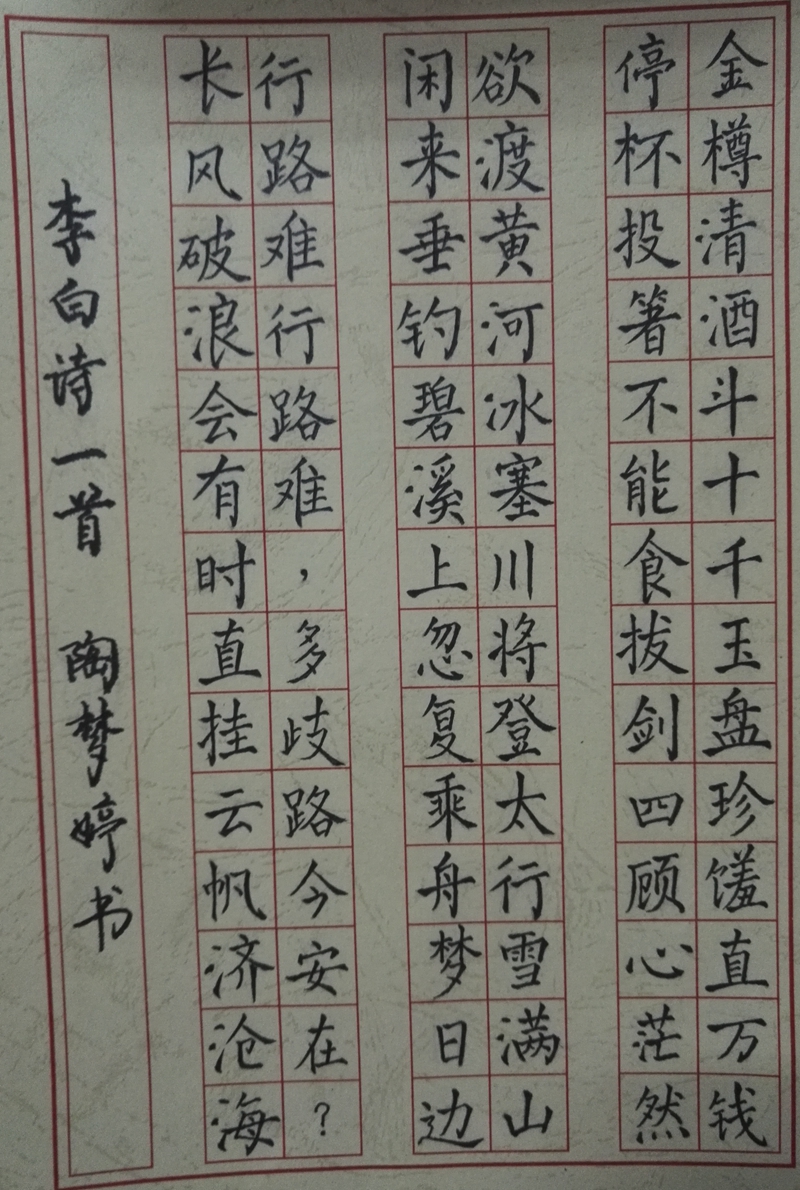 金樽清酒斗十千玉盘珍馐直万钱
停杯投箸不能食拔剑四顾心茫然
欲渡黄河冰塞川将登太行雪满山
闲来垂钓碧溪上忽复乘舟梦日边
行路难行路难，多歧路今安在？
长风破浪会有时直挂云帆济沧海
李白诗一首 陶梦婷书